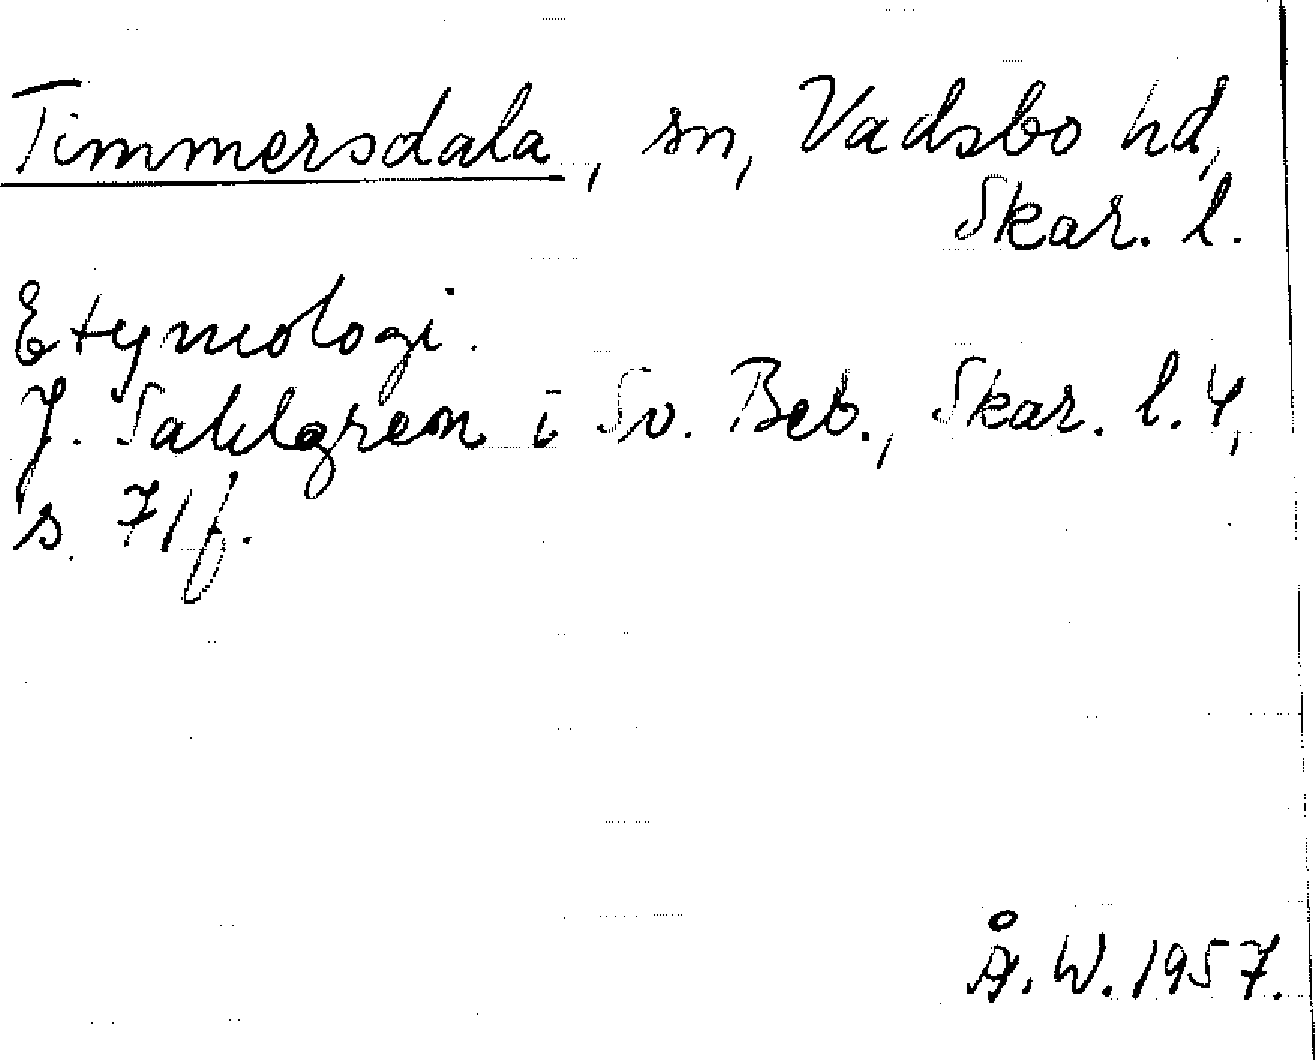 Timmersdala, sn, Vadsbo hd,
Skar. l.
Etymologi.
J. Sahlgren i Sv. Beb., Skar. l. 4,
s. 71f.
Å. W. 1957.